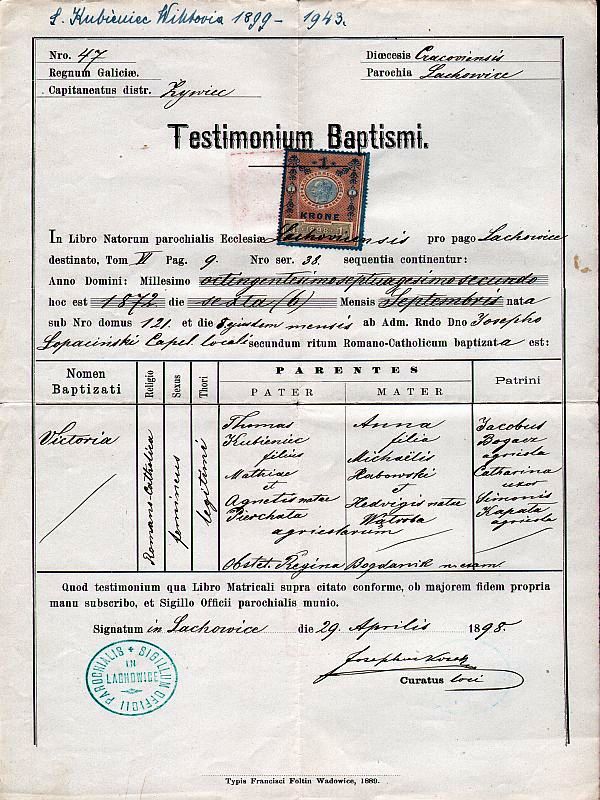 S. Kubieniec Wiktoria 1899 - 1943.
Nro. 47
Regnum Galiciæ.
Capitaneatus distr. Żywiec
Diœcesis Cracoviensis
Parochia Lachowice
Testimonium Baptismi.
1
KRONE
1898
In Libro Natorum parochialis Ecclesiæ Lachovicensis pro pago Lachowice
destinato, Tom VI Pag. 9. Nro ser. 38. sequentia continentur:
Anno Domini: Millesimo octingentesimo septuagesimo secundo
hoc est 1872 die sexta (6) Mensis Septembris nata
sub Nro domus 121. et die ejusdem mensis ab Adm. Rndo Dno Josepho
Łopaciński Capel. locali secundum ritum Romano-Catholicum baptizata est:
Nomen Baptizati
Religio
Sexus
Thori
PARENTES
PATER
MATER
Patrini
Victoria
Romano-Catholica
femineus
legitimi
Thomas
Kubieniec
filius
Mathiae
et
Agnetis natae
Pierchata
agricolarum
Anna
filia
Michaëlis
Habowski
et
Hedvigis natae
Wątroba
Jacobus
Bogacz
agricola
Catharina
uxor
Simonis
Kapała
agricola
Obstet. Regina Bogdanik
Quod testimonium qua Libro Matricali supra citato conforme, ob majorem fidem propria
manu subscribo, et Sigillo Officii parochialis munio.
Signatum in Lachowice die 29 Aprilis 1898.
Curatus loci
SIGILLUM OFFICII PAROCHIALIS
IN
LACHOWICE
Typis Francisci Foltin Wadowice, 1889.